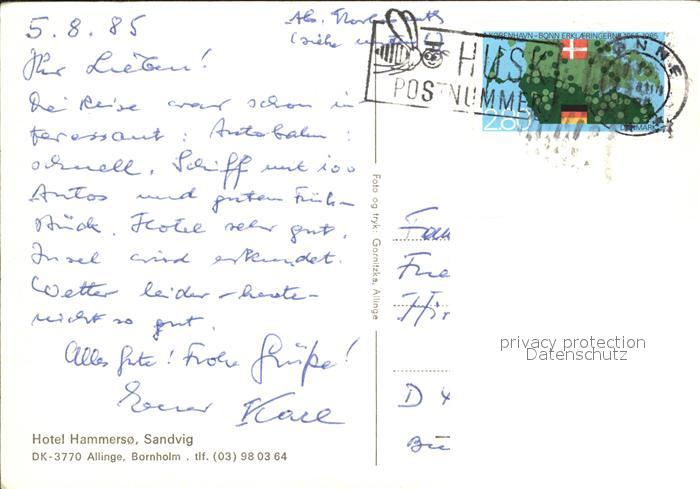 5.8.85
Abs.
(siehe
Ihr Lieben!
Die Reise war schon in-
teressant: Autobahn:
schnell, Schiff mit 100
Autos und gutem Früh-
stück. Hotel sehr gut,
Insel wird erkundet.
Wetter leider - heute -
nicht so gut.
Alles Gute! Frohe Grüße!
Euer Karl
Hotel Hammersø, Sandvig
DK-3770 Allinge, Bornholm . tlf. (03) 98 03 64
Foto og tryk: Gornitzka, Allinge
HUSK
POSTNUMMER
KØBENHAVN-BONN ERKLÆRINGERNE 1955-1985
2.80
DANMARK
RØNNE
Fam
D 4
privacy protection
Datenschutz